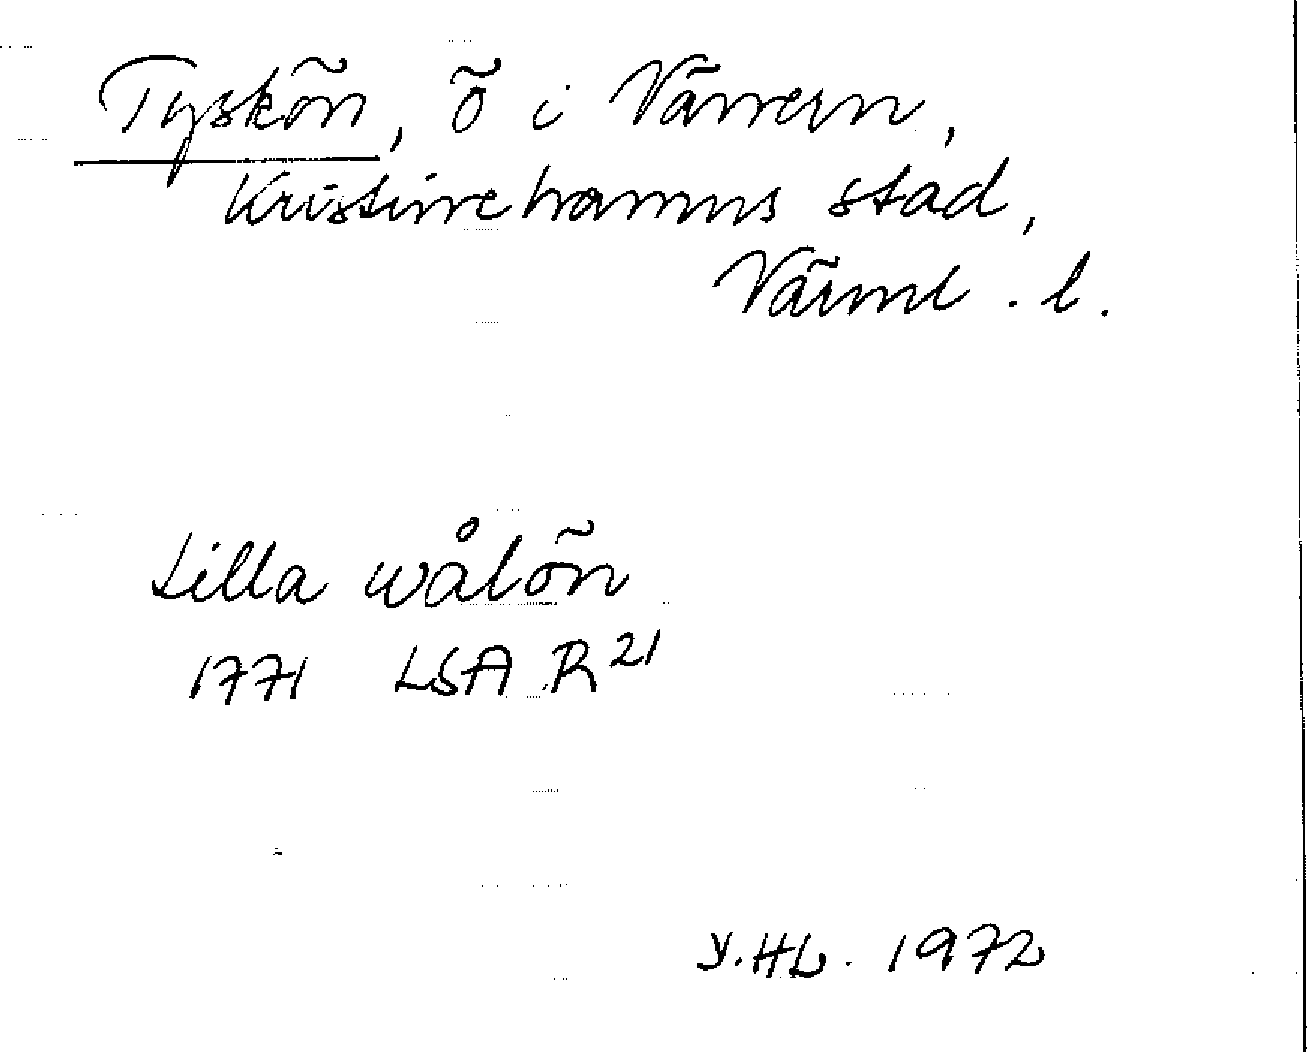 Tyskön, ö i Vänern,
Kristinehamns stad,
Värml. l.
Lilla wålön
1771 LSA R 21
Y.HL. 1972